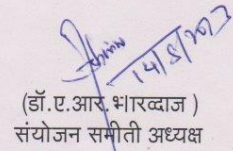 14/5/2013
(डॉ.ए.आर.भारव्दाज )
संयोजन समीती अध्यक्ष